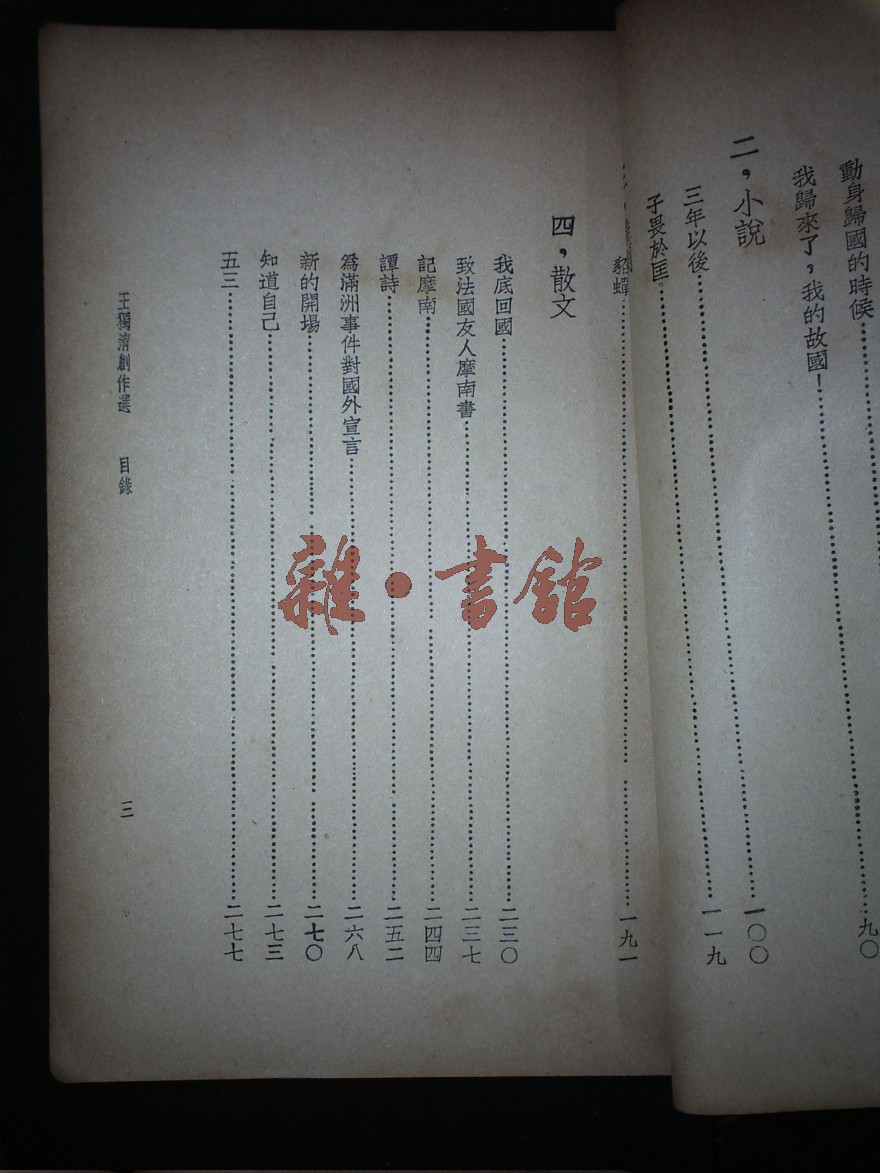 動身歸國的時候……九〇
我歸來了，我的故國！……
二，小說
三年以後……一〇〇
子畏於匡……一一九
貂蟬……一九一
四，散文
我底回國……二三〇
致法國友人摩南書……二三七
記摩南……二四四
譚詩……二五二
爲滿洲事件對國外宣言……二六八
新的開場……二七〇
知道自己……二七三
五三……二七七
王獨清創作選 目錄
三
雜·書館